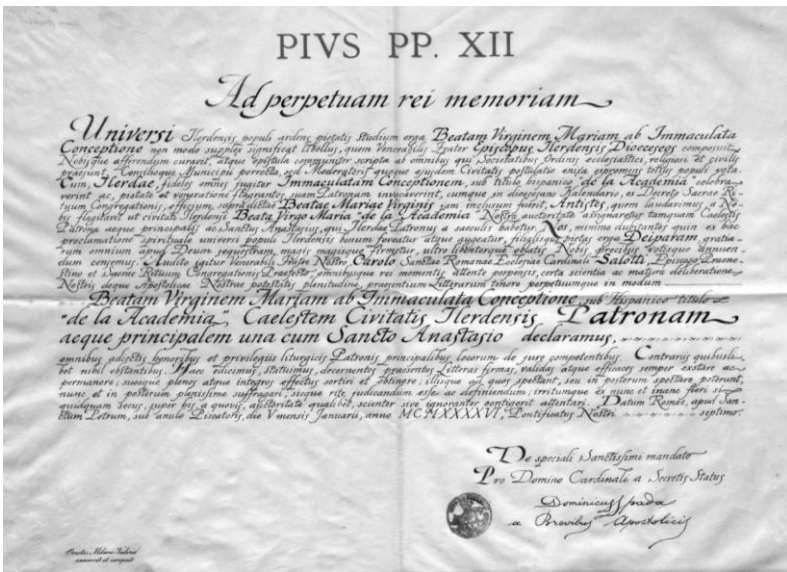 PIVS PP. XII
Ad perpetuam rei memoriam
Universi Ilerdensis populi ardens pietatis studium erga Beatam Virginem Mariam ab Immaculata
Conceptione non modo supplex significat libellus, quem Venerabilis Frater Episcopus Ilerdensis Dioeceseos composuit,
Nobisque afferendum curavit, atque epistula communiter scripta ab omnibus qui Societatibus Ordinis ecclesiastici, religiosi et civilis
praesunt, Concilioque Municipii porrecta, sed Moderatoris quoque ejusdem Civitatis postulatio enixa exprimens totius populi vota.
Cum, Ilerdae, fideles omnes jugiter Immaculatam Conceptionem, sub titulo hispanico "de la Academia" celebra-
verint ac, pietate et veneratione flagrantes, quam Patronam invocaverint, cumque in dioecesano Kalendario, ex Decreto Sacrae Ri-
tuum Congregationis, officium supradictae Beatae Mariae Virginis jam inclusum fuerit, Antistes, quem laudavimus, a No-
bis flagitavit ut civitati Ilerdensi Beata Virgo Maria "de la Academia" Nostra auctoritate assignaretur tamquam Caelestis
Patrona aeque principalis ac Sanctus Anastasius, qui Ilerdae Patronus a saeculis habetur. Nos, minime dubitantes quin ex hac
proclamatione spirituale universi populi Ilerdensis bonum foveatur atque augeatur, filialisque pietas erga Deiparam, gratia-
rum omnium apud Deum sequestram, magis magisque firmetur, ultro libenterque oblatis Nobis precibus votisque annuen-
dum censemus. Audito igitur Venerabili Fratre Nostro Carolo Sanctae Romanae Ecclesiae Cardinali Salotti, Episcopo Praene-
stino et Sacrae Rituum Congregationis Praefecto, omnibusque rei momentis attente perpensis, certa scientia ac matura deliberatione
Nostris deque Apostolicae Nostrae potestatis plenitudine, praesentium Litterarum tenore perpetuumque in modum
Beatam Virginem Mariam ab Immaculata Conceptione, sub Hispanico titulo
"de la Academia", Caelestem Civitatis Ilerdensis Patronam
aeque principalem una cum Sancto Anastasio declaramus,
omnibus adjectis honoribus et privilegiis liturgicis Patronis principalibus, locorum de jure competentibus. Contrariis quibusli-
bet nihil obstantibus. Haec edicimus, statuimus, decernentes praesentes Litteras firmas, validas atque efficaces semper exstare ac
permanere; suosque plenos atque integros effectus sortiri et obtinere; illisque ad quos spectant, seu in posterum spectare poterunt,
nunc et in posterum plenissime suffragari; sicque rite judicandum esse ac definiendum; irritumque ex nunc et inane fieri si
quidquam secus, super his, a quovis, auctoritate qualibet, scienter sive ignoranter contigerit attentari. Datum Romae, apud San-
ctum Petrum, sub anulo Piscatoris, die V mensis Januarii, anno MCMXXXXVI, Pontificatus Nostri septimo.
De speciali Sanctissimi mandato
Pro Domino Cardinali a Secretis Status
Dominicus Spada
a Brevibus Apostolicis